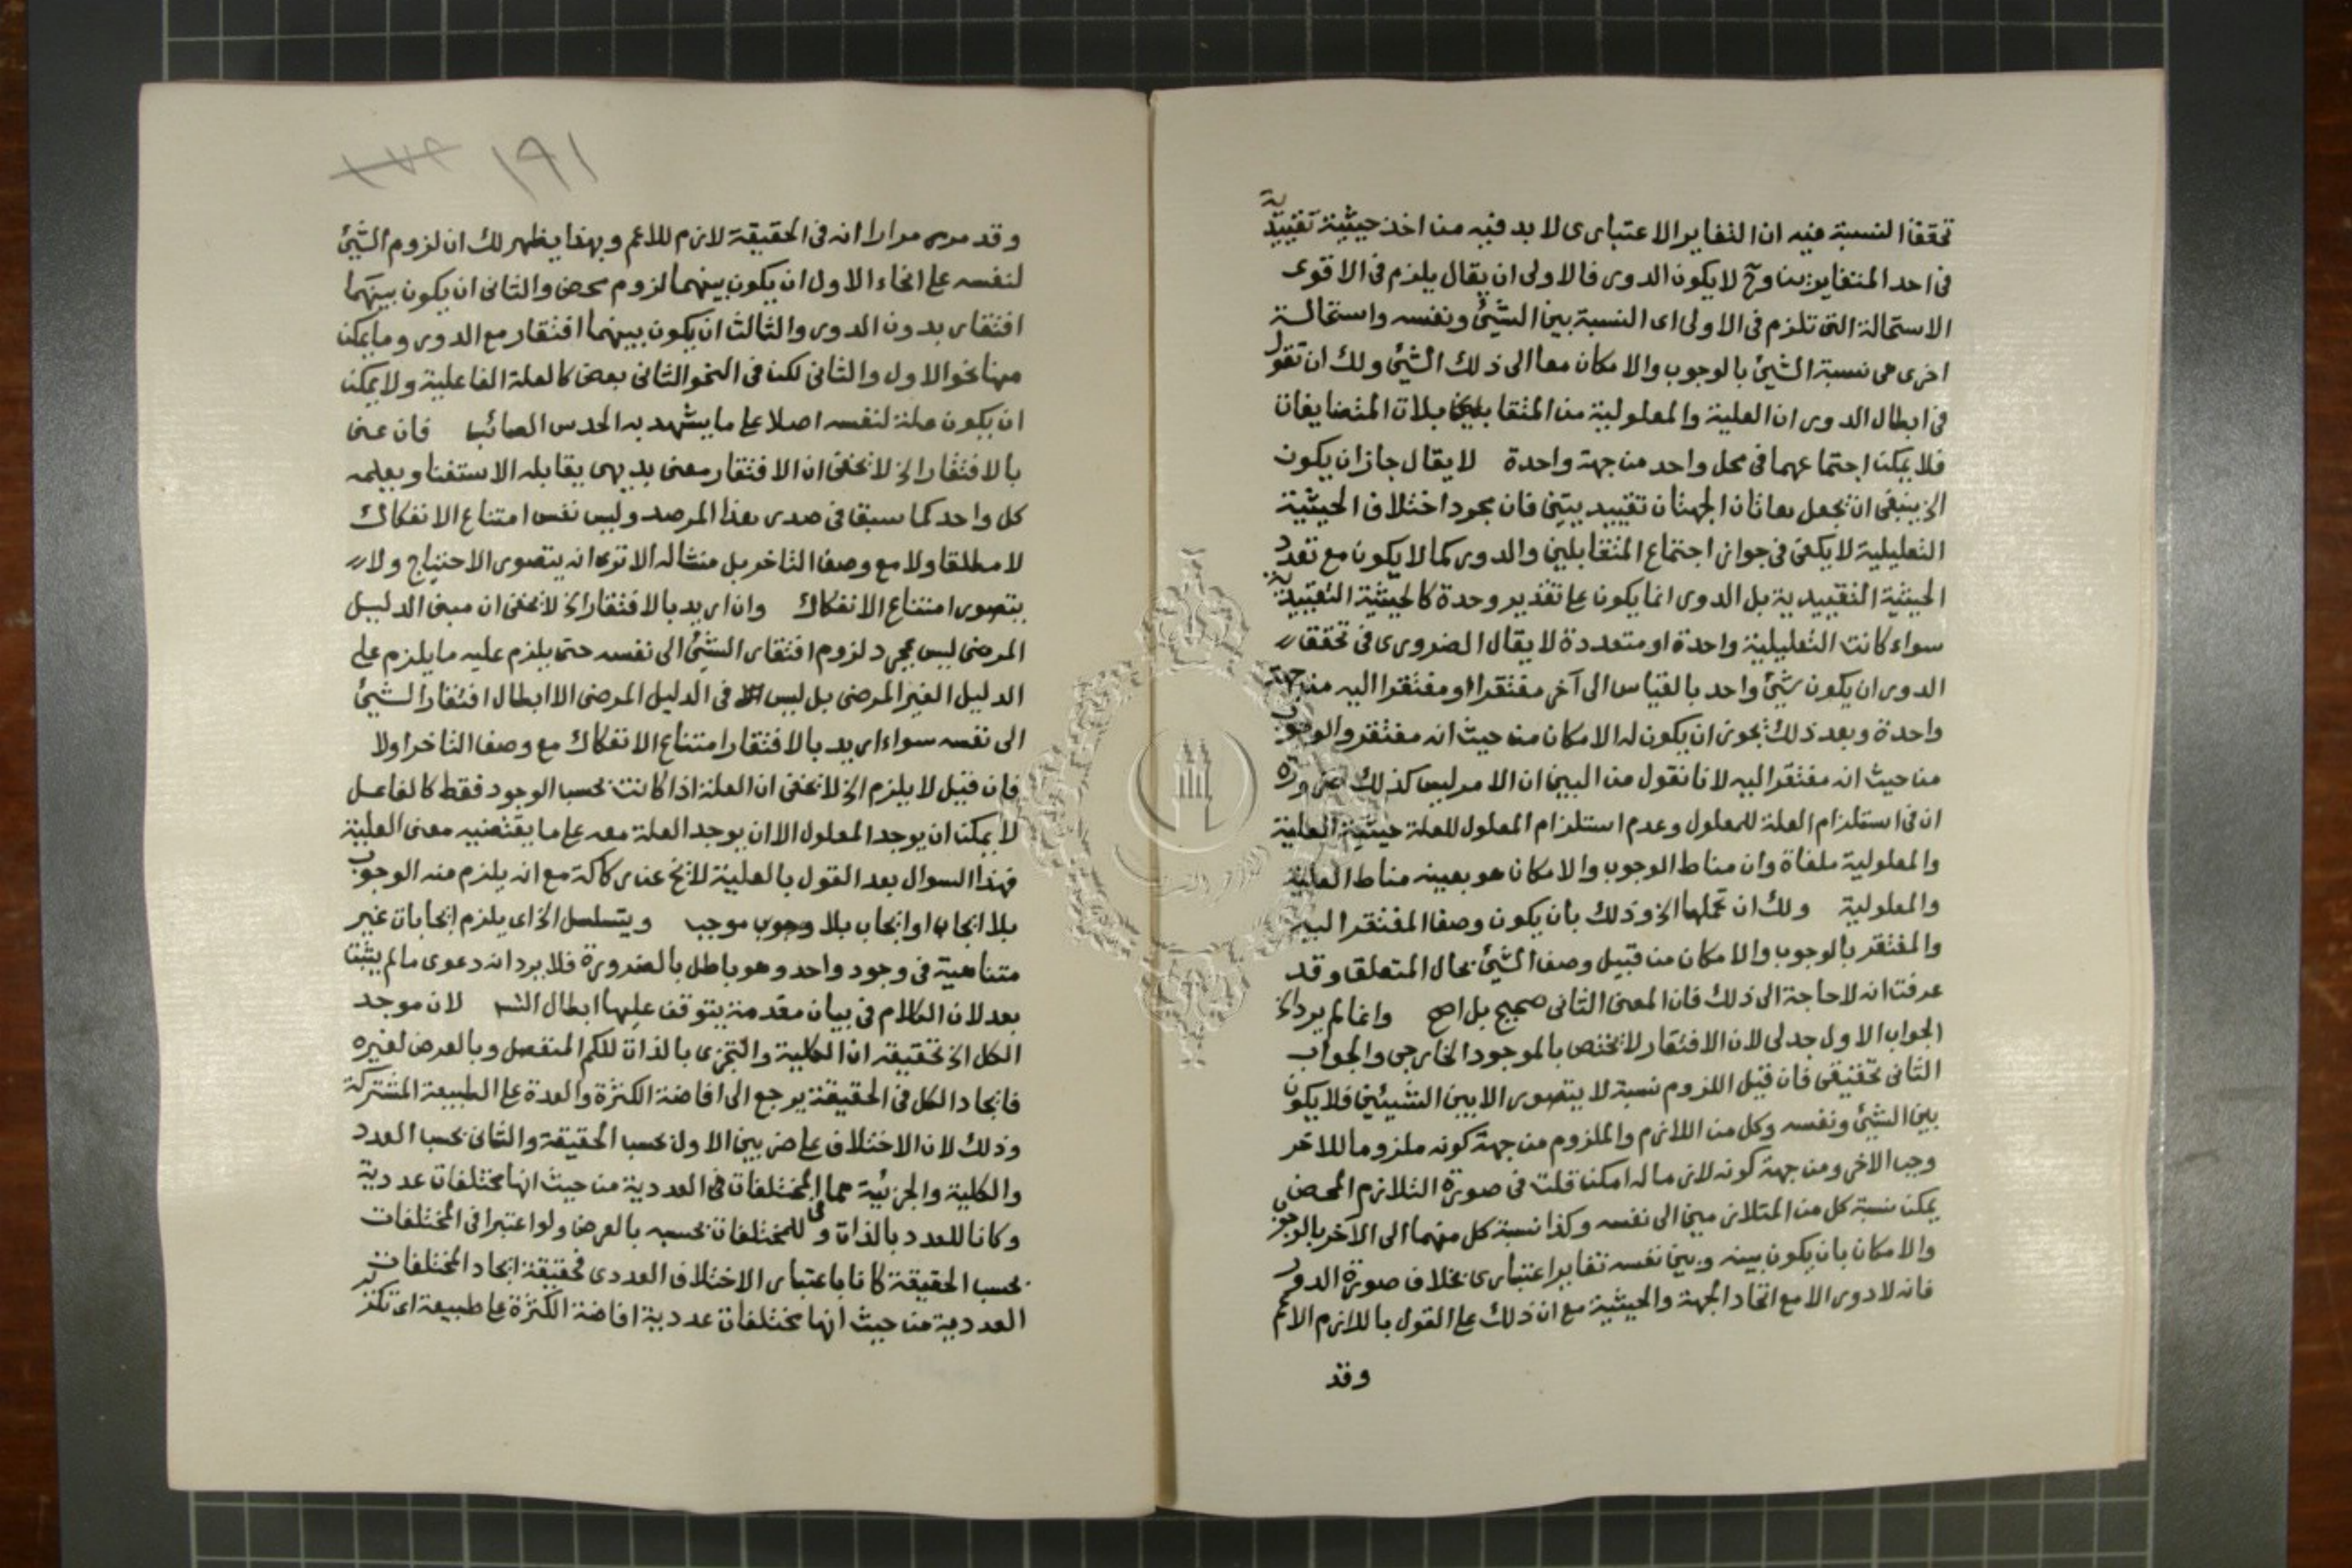 تحقق النسبة فيه ان التغاير الاعتبارى لا بد فيه من اخذ حيثية تقييدية
فى احد المتغايرين وح لا يكون الدور فالاولى ان يقال يلزم فى الاقوى
الاستحالة التى تلزم فى الاولى اى النسبة بين الشئ ونفسه واستحالة
اخرى هى نسبة الشئ بالوجوب والامكان معا الى ذلك الشئ ولك ان تقول
فى ابطال الدور ان العلية والمعلولية من المتقابلين بلات المتضايفان
فلا يمكن اجتماعهما فى محل واحد من جهة واحدة لا يقال جاز ان يكون
الخ ينبغى ان تجعل هاتان الجهتان تقييديتين فان مجرد اختلاف الحيثية
التعليلية لا يكفى فى جواز اجتماع المتقابلين والدور كما لا يكون مع تعدد
الحيثية التقييدية بل الدور انما يكون على تقدير وحدة كالحيثية التقييدية
سواء كانت التعليلية واحدة او متعددة لا يقال الضرورى فى تحقق
الدور ان يكون شئ واحد بالقياس الى آخر مفتقرا او مفتقرا اليه من جهة
واحدة وبعد ذلك يجوز ان يكون له الامكان من حيث انه مفتقر والوجوب
من حيث انه مفتقر اليه لانا نقول من البين ان الامر ليس كذلك ضرورة
ان فى استلزام العلة للمعلول وعدم استلزام المعلول للعلة حيثية العلية
والمعلولية ملغاة وان مناط الوجوب والامكان هو بعينه مناط العلية
والمعلولية ولك ان تحملها الخ وذلك بان يكون وصف المفتقر اليه
والمفتقر بالوجوب والامكان من قبيل وصف الشئ بحال المتعلق وقد
عرفت انه لا حاجة الى ذلك فان المعنى الثانى صحيح بل اصح وانما لم يرد الخ
الجواب الاول جدلى لان الافتقار لا يختص بالموجود الخارجى والجواب
الثانى تحقيقى فان قيل اللزوم نسبة لا يتصور الا بين الشيئين فلا يكون
بين الشئ ونفسه وكل من اللازم والملزوم من جهة كونه ملزوما للاخر
وجب الاخر ومن جهة كونه لازما له امكن قلت فى صورة التلازم المحض
يمكن نسبة كل من المتلازمين الى نفسه وكذا نسبة كل منهما الى الآخر بالوجوب
والامكان بان يكون بينه وبين نفسه تغاير اعتبارى بخلاف صورة الدور
فانه لا دور الا مع اتحاد الجهة والحيثية مع ان ذلك على القول باللازم الاعم
وقد
١٩١
وقد مر مرارا انه فى الحقيقة لازم للاعم وبهذا يظهر لك ان لزوم الشئ
لنفسه على انحاء الاول ان يكون بينهما لزوم محض والثانى ان يكون بينهما
افتقار بدون الدور والثالث ان يكون بينهما افتقار مع الدور وما يمكن
مهنا نحو الاول والثانى لكن فى النحو الثانى بعض كالعلة الفاعلية ولا يمكن
ان يكون علة لنفسه اصلا على ما يشهد به الحدس الصائب فان عنى
بالافتقار الخ لا يخفى ان الافتقار معنى بديهى يقابله الاستغنا ويعلمه
كل واحد كما سبق فى صدر هذا المرصد وليس نفس امتناع الانفكاك
لا مطلقا ولا مع وصف التاخر بل منشاله الا ترى انه يتصور الاحتياج ولا
يتصور امتناع الانفكاك وان اريد بالافتقار الخ لا يخفى ان مبنى الدليل
المرضى ليس مجرد لزوم افتقار الشئ الى نفسه حتى يلزم عليه ما يلزم على
الدليل الغير المرضى بل ليس فى الدليل المرضى الا ابطال افتقار الشئ
الى نفسه سواء اريد بالافتقار امتناع الانفكاك مع وصف التاخر اولا
فان قيل لا يلزم الخ لا يخفى ان العلة اذا كانت بحسب الوجود فقط كالفاعل
لا يمكن ان يوجد المعلول الا ان يوجد العلة معه على ما يقتضيه معنى العلية
فهذا السوال بعد القول بالعلية لا يخ عن ركاكة مع انه يلزم منه الوجوب
بلا ايجاب او ايجاب بلا وجوب موجب ويتسلسل الخ اى يلزم ايجابات غير
متناهية فى وجود واحد وهو باطل بالضرورة فلا يرد انه دعوى ما لم يثبت
بعد لان الكلام فى بيان مقدمة يتوقف عليها ابطال التسـ لان موجد
الكل الخ تحقيقه ان الكلية والتجزى بالذات للكم المنفصل وبالعرض لغيره
فايجاد الكل فى الحقيقة يرجع الى افاضة الكثرة والعدة على الطبيعة المشتركة
وذلك لان الاختلاف على ضربين الاول بحسب الحقيقة والثانى بحسب العدد
والكلية والجزئية هما المختلفات فى العددية من حيث انها مختلفات عددية
وكانا للعدد بالذات وفى للمختلفات بحسبه بالعرض ولو اعتبرا فى المختلفات
بحسب الحقيقة كانا باعتبار الاختلاف العددى فحقيقة ايجاد المختلفات
العددية من حيث انها مختلفات عددية افاضة الكثرة على طبيعة اى تكثر